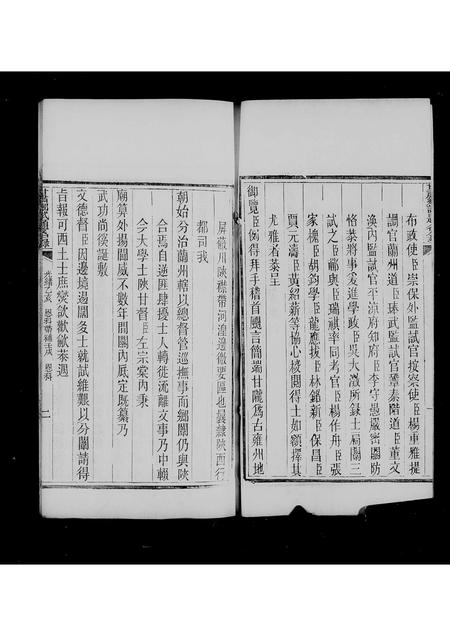 布政使臣崇保外監試官按察使臣楊重雅提
調官蘭州道臣琫武監試官鞏秦階道臣董文
渙內監試官平涼府知府臣李守愚嚴密關防
恪恭將事爰進學政臣吳大澂所錄士扃闈三
試之臣郇與臣瑞祺率同考官臣楊作舟臣張
家槐臣胡鈞學臣龍應拔臣林銘新臣保昌臣
賈元濤臣黃紹薪等協心校閱得士如額擇其
尤雅者恭呈
御覽臣例得拜手稽首颺言簡端甘隴爲古雍州地
屏蔽川陝襟帶河湟邊徼要區也曩隸陝西行
都司我
朝始分治蘭州轄以總督管巡撫事而鄉闈仍與陝
合焉自逆匪肆擾士人轉徙流離文事乃中輟
今大學士陝甘督臣左宗棠內秉
廟算外揚閫威不數年間關內底定既纂乃
武功尚俟誕敷
文德督臣因邊境過闊多士就試維艱以分闈請得
旨報可西土士庶歡歈歡歈恭遇
甘肅鄉試題名錄 光緒乙亥 恩科帶補壬戌 恩科 二